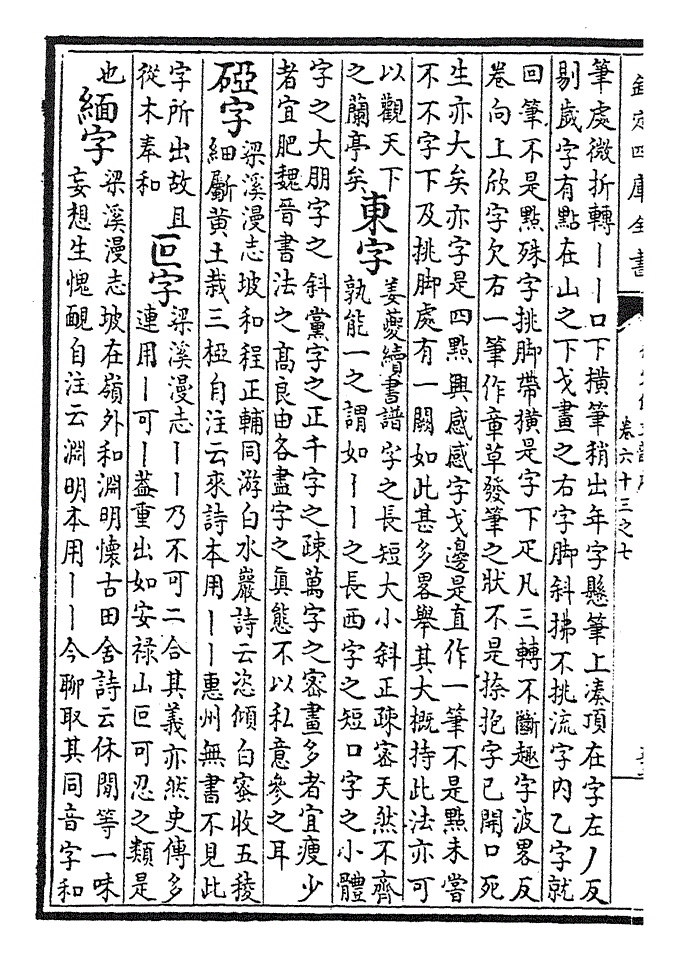 欽定四庫全書
卷六十三之七
筆處微折轉丨丨口下横筆稍出年字懸筆上凑頂在字左丿反
剔歲字有點在山之下戈畫之右字脚斜拂不挑流字内乙字就
回筆不是點殊字挑脚帶横是字下疋凡三轉不斷趣字波畧反
卷向上欣字欠右一筆作章草發筆之狀不是捺抱字已開口死
生亦大矣亦字是四點興感感字戈邊是直作一筆不是點未嘗
不不字下及挑脚處有一闕如此甚多畧舉其大概持此法亦可
以觀天下
之蘭亭矣
東字
姜夔續書譜字之長短大小斜正疎密天然不齊
孰能一之謂如丨丨之長西字之短口字之小體
字之大朋字之斜黨字之正千字之疎萬字之密畫多者宜瘦少
者宜肥魏晉書法之髙良由各盡字之眞態不以私意參之耳
字
梁溪漫志坡和程正輔同游白水巖詩云恣傾白蜜收五稜
細劚黄土栽三椏自注云來詩本用丨丨惠州無書不見此
字所出故且
從木奉和
叵字
梁溪漫志丨丨乃不可二合其義亦然史傳多
連用丨可丨葢重出如安禄山叵可忍之類是
也
緬字
梁溪漫志坡在嶺外和淵明懷古田舍詩云休閒等一味
妄想生愧靦自注云淵明本用丨丨今聊取其同音字和